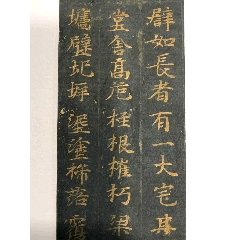 譬如長者有一大宅其
堂舍高危柱根摧朽梁
墻壁圮坼埿塗褫落覆